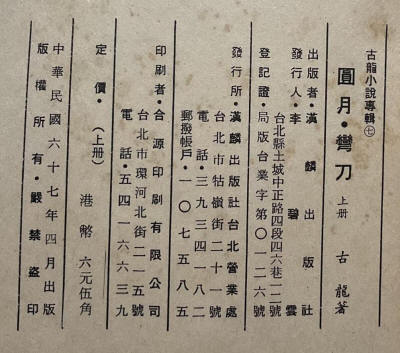 古龍小說專輯㊆
圓月・彎刀 上册 古龍著
出版者・漢麟出版社
發行人・李碧雲
台北縣土城中正路四段四六巷一二號
登記證・局版台業字第〇一二六號
發行所・漢麟出版社台北營業處
台北市牯嶺街二十一號
電話・三九三四一八二
郵撥帳戶・一〇七五八五
印刷者・合源印刷有限公司
台北市環河北街二一五號
電話・五四一六六三九
定價・(上册) 港幣 六元伍角
中華民國六十七年四月出版
版權所有・嚴禁盜印